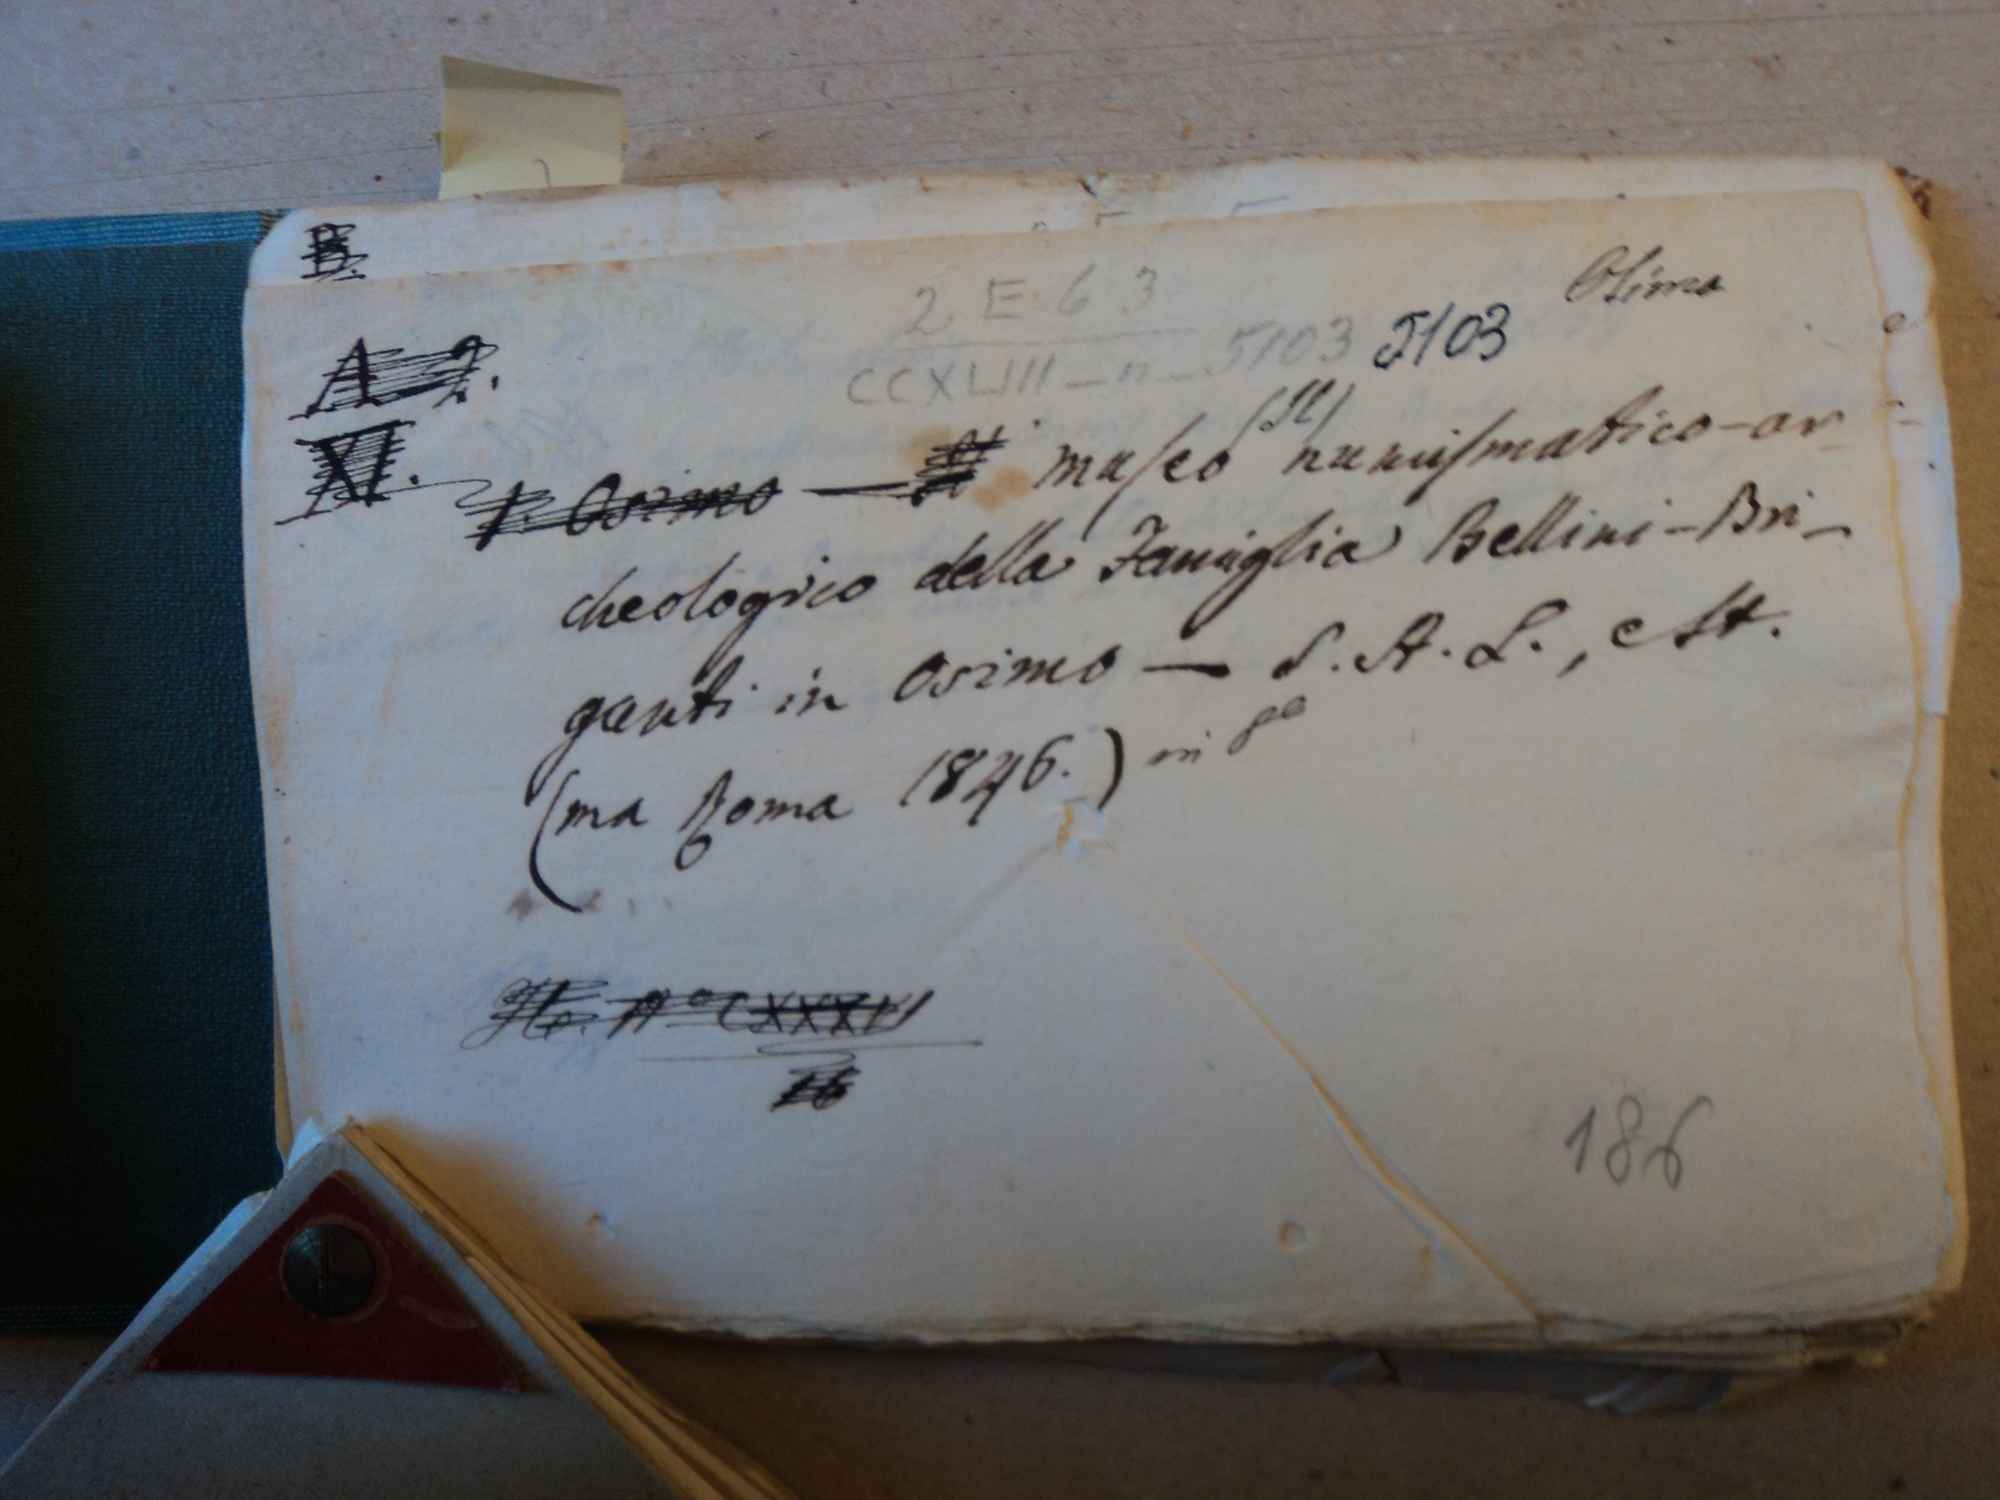 B.
Osimo
2 E 6 3
A 2.
CCXLIII - n - 5103 5103
XI.
(Il)
1. Osimo — Il museo numismatico-ar-
cheologico della Famiglia Bellini-Bri-
ganti in Osimo — S. A. L., e St.
(ma Roma 1846.) in 8°
N° CXXXVI
16
186